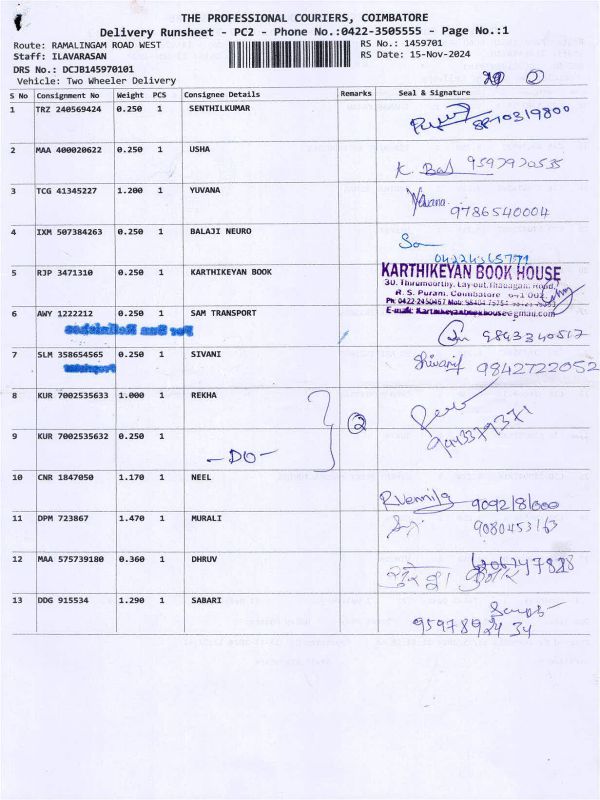 THE PROFESSIONAL COURIERS, COIMBATORE
Delivery Runsheet - PC2 - Phone No.:0422-3505555 - Page No.:1
Route: RAMALINGAM ROAD WEST RS No.: 1459701
Staff: ILAVARASAN RS Date: 15-Nov-2024
DRS No.: DCJB145970101
Vehicle: Two Wheeler Delivery
S No Consignment No Weight PCS Consignee Details Remarks Seal & Signature
1 TRZ 240569424 0.250 1 SENTHILKUMAR 8810319800
2 MAA 400020622 0.250 1 USHA
3 TCG 41345227 1.200 1 YUVANA Yuvana 9786540004
4 IXM 507384263 0.250 1 BALAJI NEURO
5 RJP 3471310 0.250 1 KARTHIKEYAN BOOK KARTHIKEYAN BOOK HOUSE
30, Thirumoorthy, Lay-out, Thadagam Road,
R. S. Puram, Coimbatore - 641 002.
E-mail: Karthikeyanbookhouse@gmail.com
6 AWY 1222212 0.250 1 SAM TRANSPORT 9843340517
7 SLM 358654565 0.250 1 SIVANI 9842722052
8 KUR 7002535633 1.000 1 REKHA 2 9443379371
9 KUR 7002535632 0.250 1 -DO-
10 CNR 1847050 1.170 1 NEEL R.Vennila
11 DPM 723867 1.470 1 MURALI 9080453163
12 MAA 575739180 0.360 1 DHRUV
13 DDG 915534 1.290 1 SABARI
9597892434